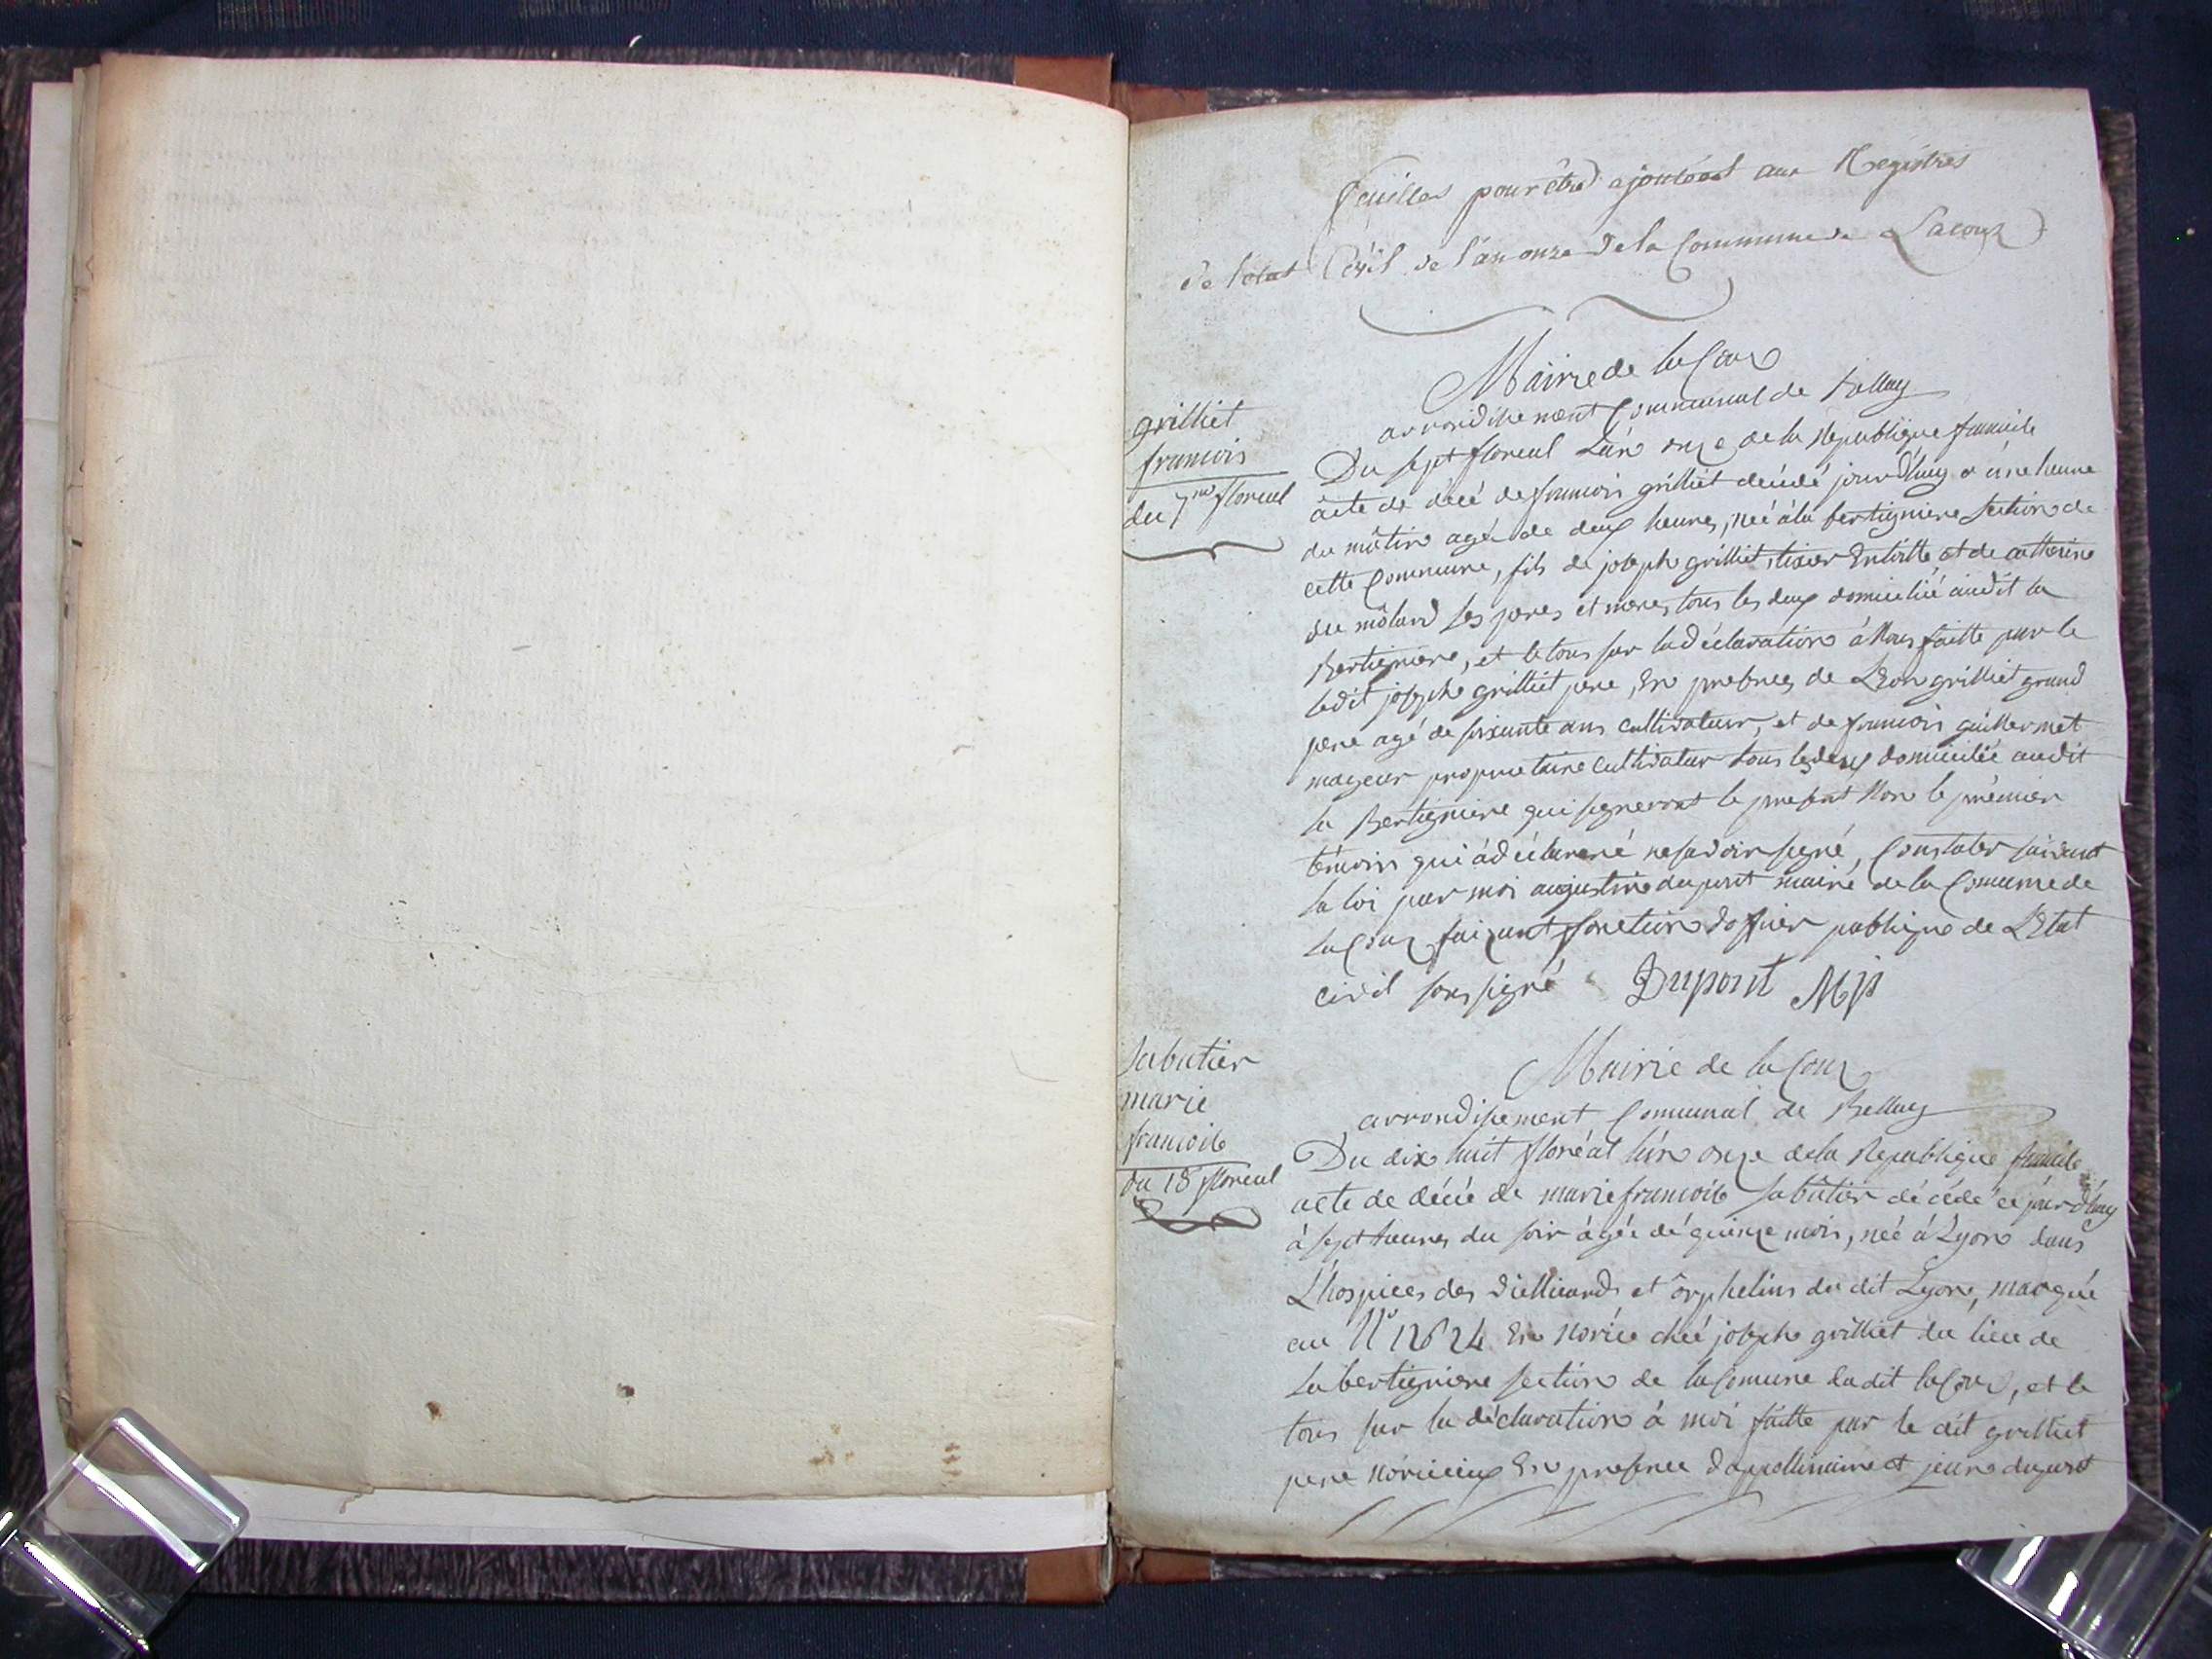 feuilles pour être ajoutées aux Regîstres
de l'etat Civil de l'an onze de la Commune de Lacoux
Mairie de la Coux
arrondisement Communal de Belley
grilliet
francois
du 7me floreal
Du sept floreal L'an onze de la Republique francaise
acte de décé de francois grilliet décédé jourd'huy a une heure
du mâtin agé de deux heures, née à la bertigniere Section de
cette Commune, fils de joseph grilliet, tixier En toille et de catherine
du môlard Ses peres et meres tous les deux domicilié audit la
Bertigniere, et le tous sur la déclaration à Nous faitte par le
ledit joseph grilliet pere, En presences de Léon grilliet grand
pere agé de soixante ans cultivateur, et de francois guillermet
mageur proprietaire cultivatur tous les deux domicilié audit
la Bertigniere qui signeront le present Non le prémier
témoin qui à déclareré ne savoir signé, Constater suivant
la loi par moi augustin dupont maire de la Comune de
la Coux faisant fonction d'officier publique de L'Etat
civil sous signé Dupont Mp
Mairie de la Coux
arrondisement Communal de Belley
Sabatier
marie
francoise
du 18 floreal
Du dix huit floréal L'an onze de la Republique francaise
acte de décée de marie francoise Sabatier décédé ce jourd'huy
à sept heures du soir âgée dé quinze mois, née à Lyon dans
L'hospices des vielliards et orphelins du dit Lyon, marqué
au N° 12624 En Norice ché joseph grilliet du lieu de
La bertigniere section de la Comune dudit la Coux, et le
tous sur la déclaration à moi faitte par le dit grilliet
pere Nôricieux En presence d'appollinaire et jean dupont